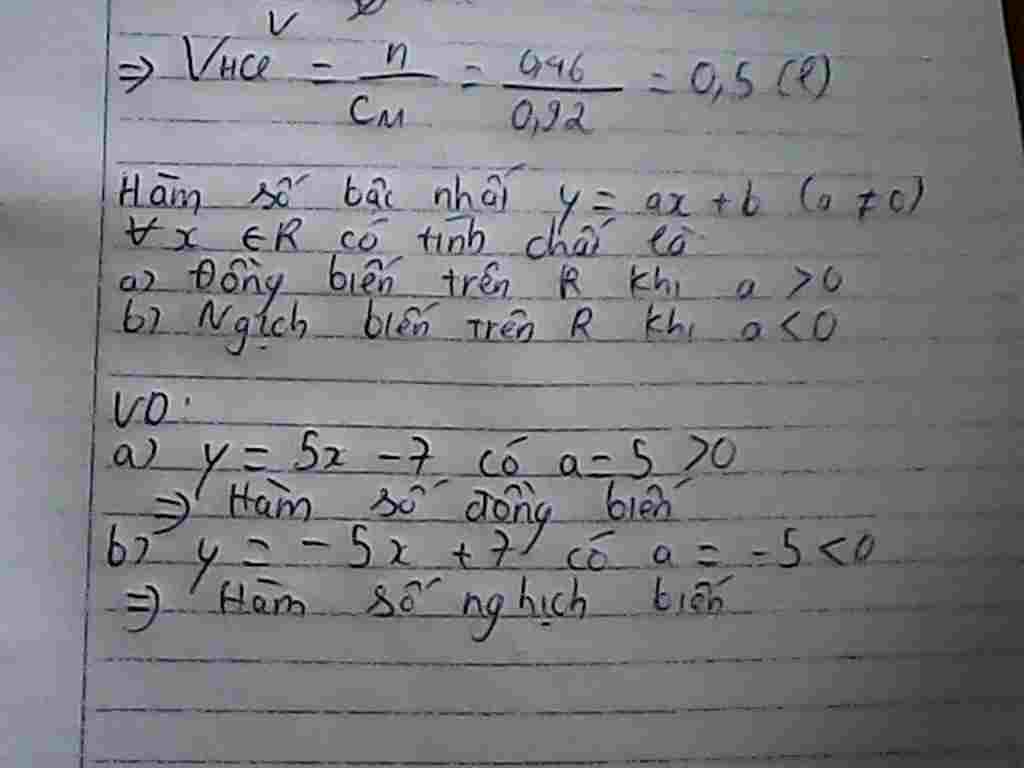 V
⇒ VHCl = n / CM = 0,46 / 0,92 = 0,5 (l)
Hàm số bậc nhất y = ax + b (a ≠ 0)
∀ x ∈ R có tính chất là
a) Đồng biến trên R khi a > 0
b) Ngịch biến trên R khi a < 0
VD:
a) y = 5x - 7 có a = 5 > 0
⇒ Hàm số đồng biến
b) y = -5x + 7 có a = -5 < 0
⇒ Hàm số nghịch biến